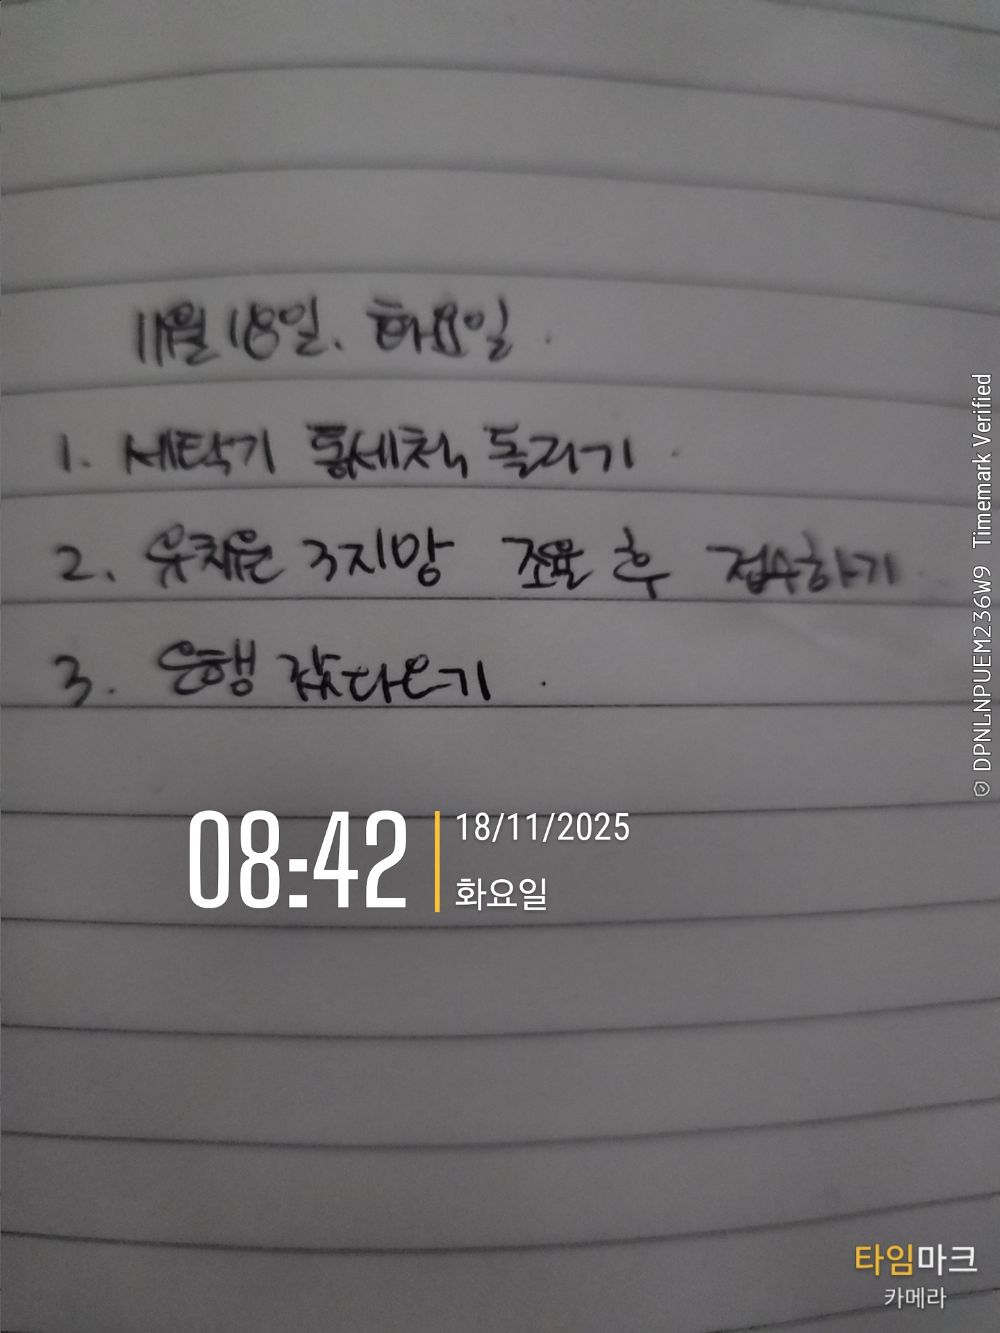 11월 18일. 화요일.
1. 세탁기 통세척, 돌리기.
2. 유치원 3지망 조율 후 접수하기
3. 은행 갔다오기.
08:42
18/11/2025
화요일
타임마크
카메라
DPNLNPUEM236W9 Timemark Verified